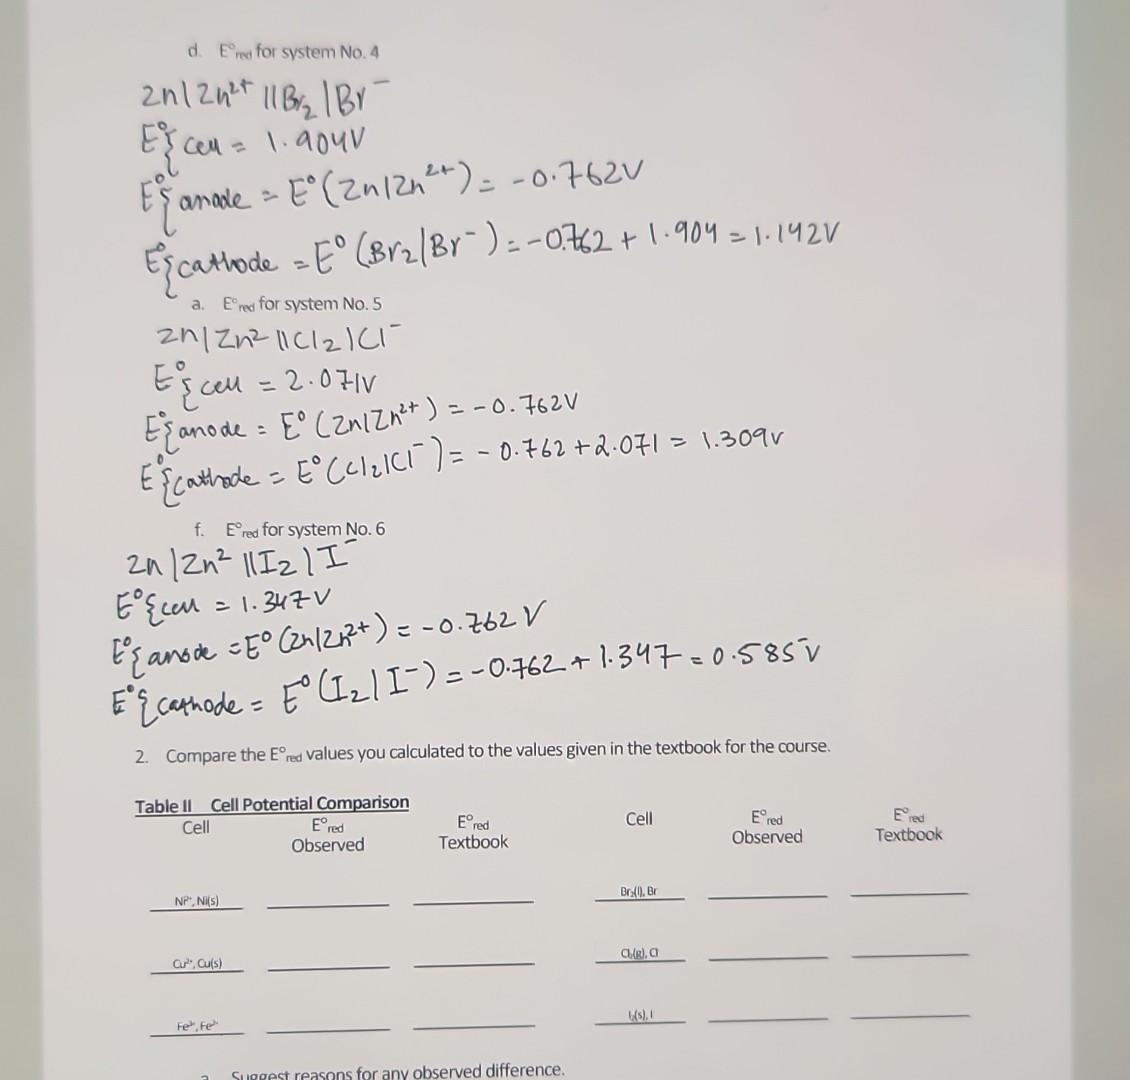 d. E°red for system No. 4
Zn|Zn²⁺ ||Br₂ |Br⁻
E°{cell = 1.904V
E°{anode = E°(Zn|Zn²⁺) = -0.762V
E°{cathode = E° (Br₂|Br⁻) = -0.762 + 1.904 = 1.142V
a. E°red for system No. 5
Zn|Zn² ||Cl₂|Cl⁻
E°{cell = 2.071V
E°{anode = E° (Zn|Zn²⁺) = -0.762V
E°{cathode = E°(Cl₂|Cl⁻) = -0.762 + 2.071 = 1.309V
f. E°red for system No. 6
Zn|Zn² ||I₂|I⁻
E°{cell = 1.347V
E°{anode = E° (Zn|Zn²⁺) = -0.762V
E°{cathode = E° (I₂|I⁻) = -0.762 + 1.347 = 0.585V
2. Compare the E°red values you calculated to the values given in the textbook for the course.
Table II Cell Potential Comparison
Cell E°red E°red Cell E°red E°red
Observed Textbook Observed Textbook
Ni²⁺, Ni(s) Br₂(l), Br⁻
Cu²⁺, Cu(s) Cl₂(g), Cl⁻
Fe³⁺, Fe²⁺ I₂(s), I⁻
Suggest reasons for any observed difference.